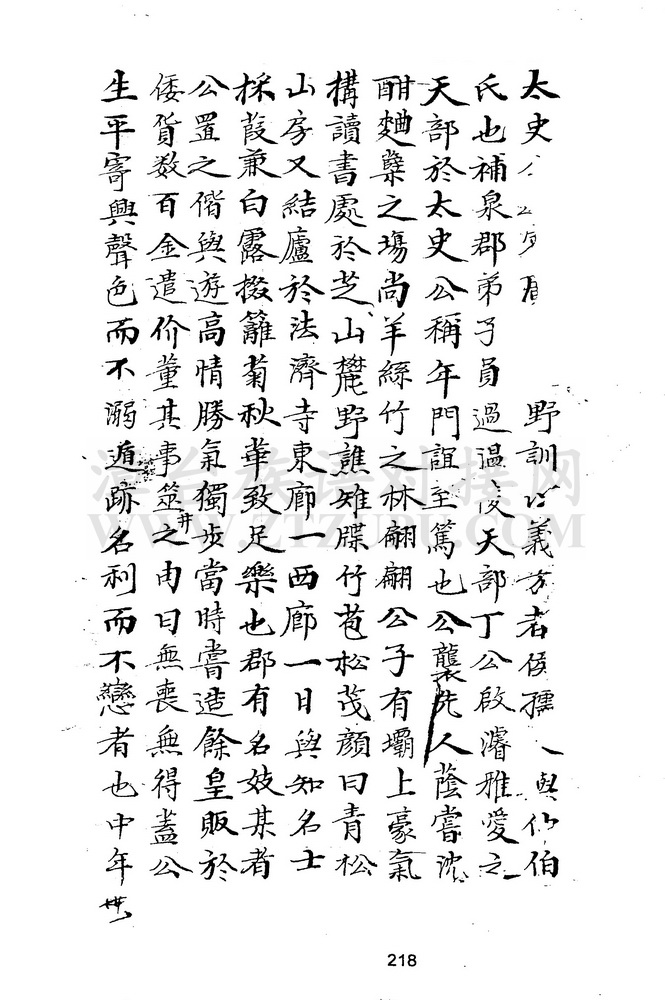 太史公 野訓以義方者侯孺人與仲伯
氏也補泉郡弟子員過温陵天部丁公啟濬雅愛之
天部於太史公稱年門誼至篤也公襲先人蔭嘗沈
酣麯蘗之場尚羊絲竹之林翩翩公子有壩上豪氣
構讀書處於芝山麓野譙雉牒竹苞松茂顏曰青松
山房又結廬於法濟寺東廊一西廊一日與知名士
採葭蒹白露掇籬菊秋華致足樂也郡有名妓某者
公置之偕與遊高情勝氣獨步當時嘗造餘皇販於
倭貨数百金遣价董其事筮之井甴曰無喪無得蓋公
生平寄興聲色而不溺遁跡名利而不戀者也中年
218